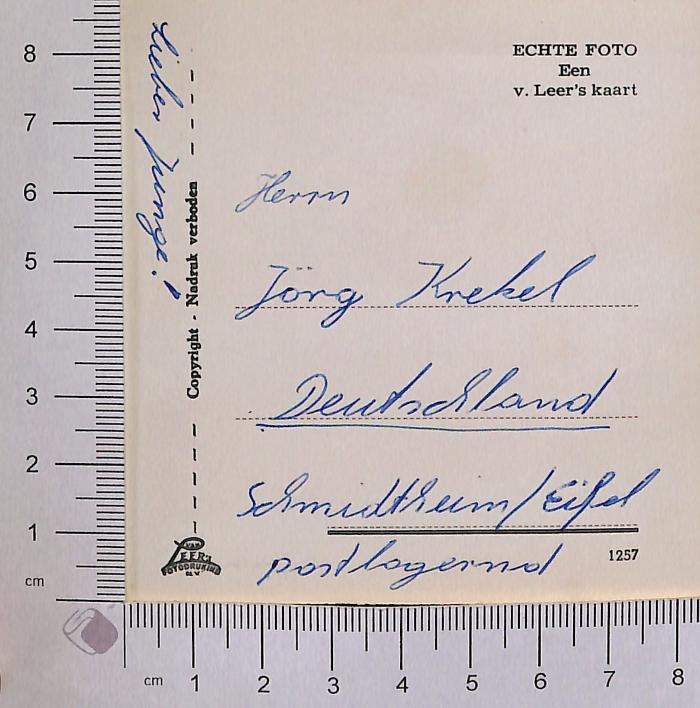 ECHTE FOTO
Een
v. Leer's kaart
Lieber Junge!
Copyright - Nadruk verboden
Herrn
Jörg Krekel
Deutschland
Schmidtheim/Eifel
postlagernd
1257
VAN
LEER'S
FOTODRUKIND.
N.V.
8
7
6
5
4
3
2
1
cm
cm 1 2 3 4 5 6 7 8